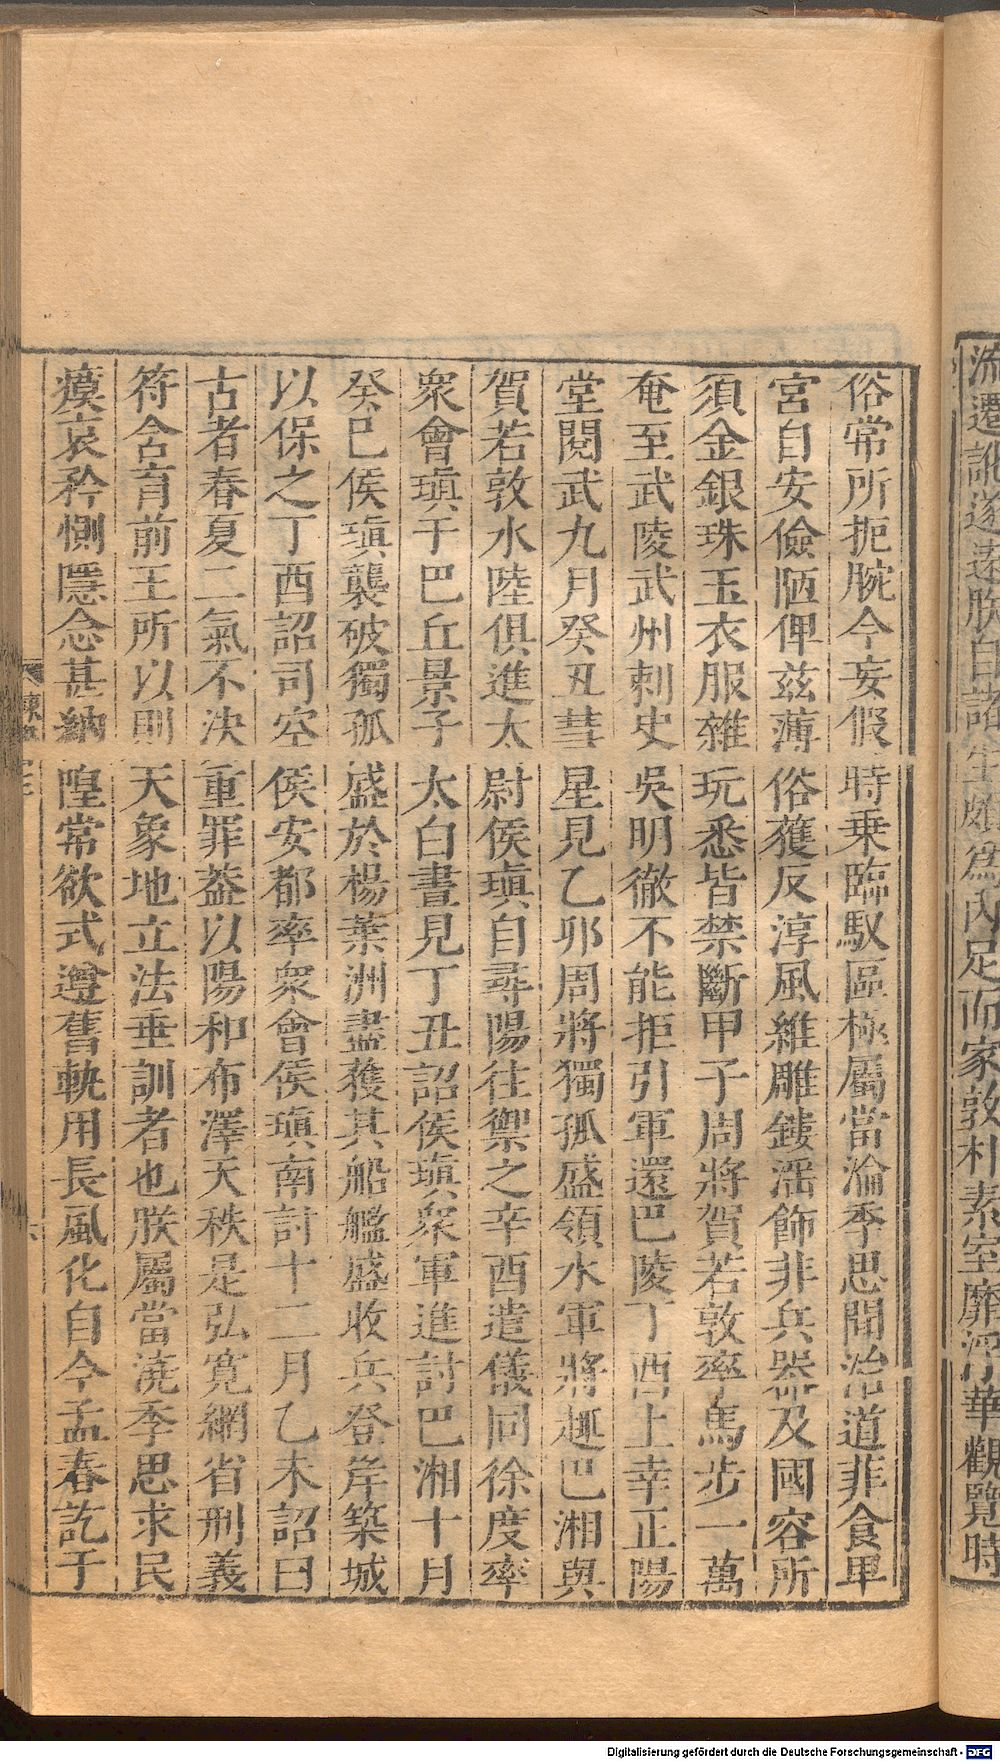 流遷訛遂遠朕自諸生頗爲內足而家敦朴素室靡浮華觀覽時
俗常所扼腕今妄假時乗臨馭區極屬當淪季思聞治道菲食卑
宮自安儉陋俾兹薄俗獲反淳風維雕鏤淫飾非兵器及國容所
須金銀珠玉衣服雜玩悉皆禁斷甲子周將賀若敦率馬步一萬
奄至武陵武州刺史吳明徹不能拒引軍還巴陵丁酉上幸正陽
堂閱武九月癸丑彗星見乙卯周將獨孤盛領水軍將趣巴湘與
賀若敦水陸俱進太尉侯瑱自尋陽往禦之辛酉遣儀同徐度率
衆會瑱于巴丘景子太白晝見丁丑詔侯瑱衆軍進討巴湘十月
癸巳侯瑱襲破獨孤盛於楊葉洲盡獲其船艦盛收兵登岸築城
以保之丁酉詔司空侯安都率衆會侯瑱南討十二月乙未詔曰
古者春夏二氣不決重罪葢以陽和布澤天秩是弘寬網省刑義
符含育前王所以則天象地立法垂訓者也朕屬當澆季思求民
瘼哀矜惻隱念甚納隍常欲式遵舊軌用長風化自今孟春訖于
Digitalisierung gefördert durch die Deutsche Forschungsgemeinschaft - DFG